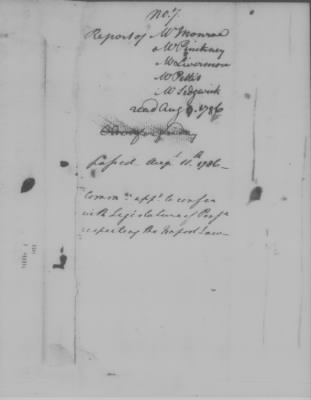 No. 7.
Report of Mr Monroe
Mr Pinckney
Mr Livermore
Mr Pettit
Mr Sedgwick
read Aug 1786
Passed Augt 11th 1786—
Comm. appd. to confer
with Legislature of Pensa
respecting the Impost Law—